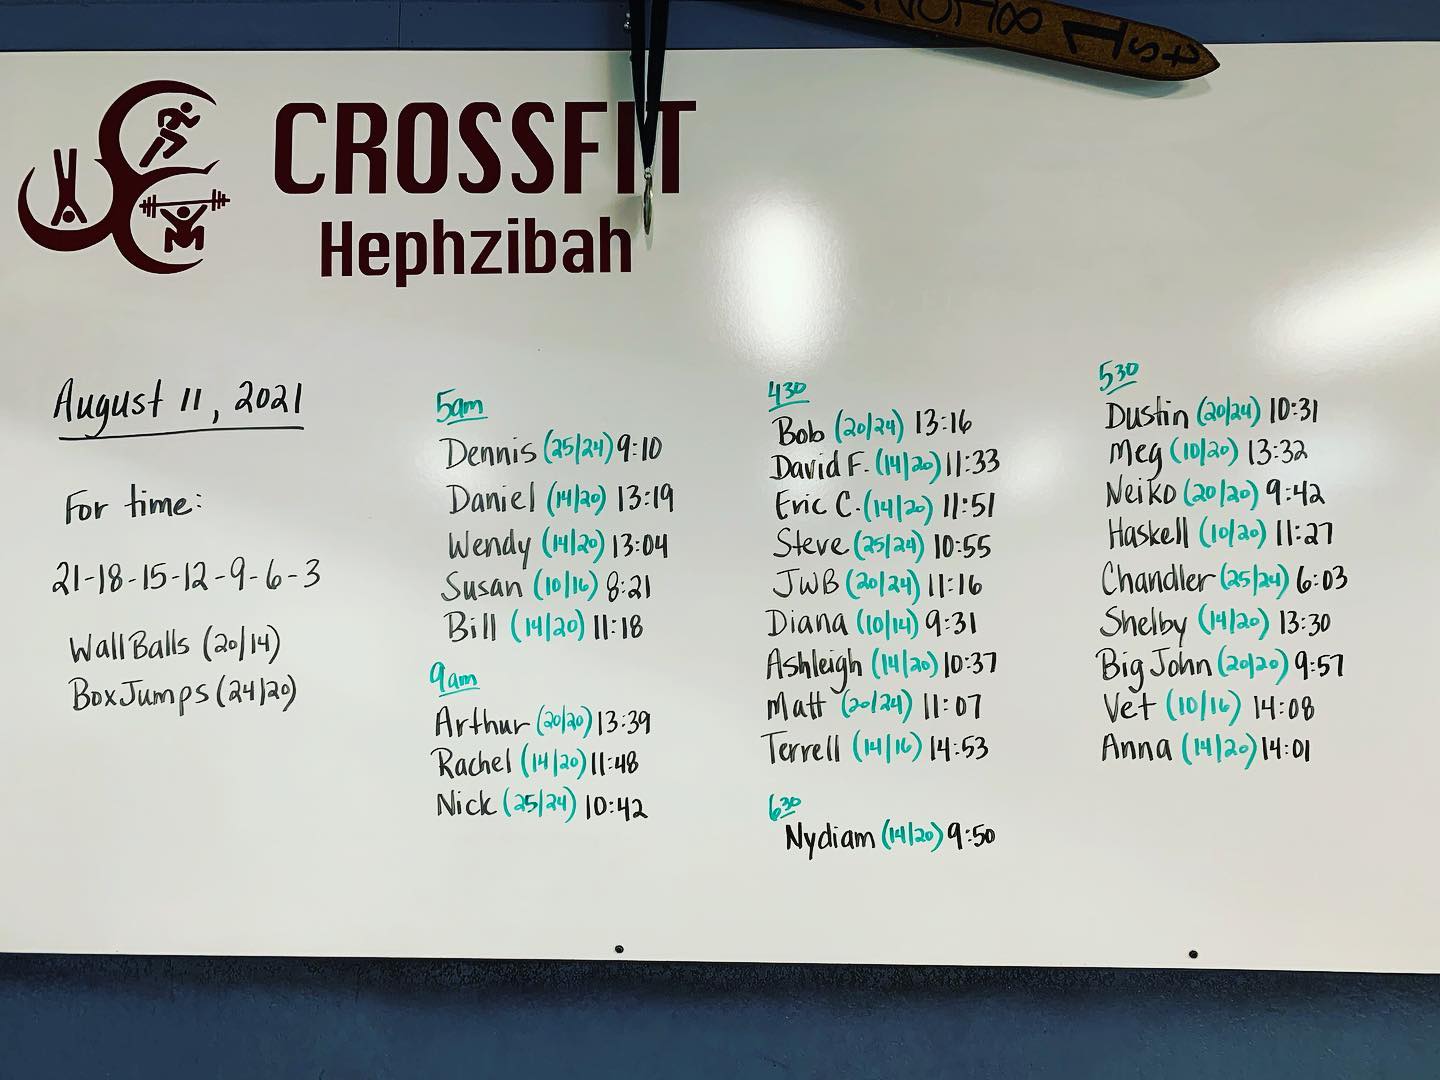 1st
CROSSFIT
Hephzibah
August 11, 2021
For time:
21-18-15-12-9-6-3
Wall Balls (20/14)
Box Jumps (24/20)
5am
Dennis (25/24) 9:10
Daniel (14/20) 13:19
Wendy (14/20) 13:04
Susan (10/16) 8:21
Bill (14/20) 11:18
9am
Arthur (20/20) 13:39
Rachel (14/20) 11:48
Nick (25/24) 10:42
430
Bob (20/24) 13:16
David F. (14/20) 11:33
Eric C. (14/20) 11:51
Steve (25/24) 10:55
JWB (20/24) 11:16
Diana (10/14) 9:31
Ashleigh (14/20) 10:37
Matt (20/24) 11:07
Terrell (14/16) 14:53
630
Nydiam (14/20) 9:50
530
Dustin (20/24) 10:31
Meg (10/20) 13:32
Neiko (20/20) 9:42
Haskell (10/20) 11:27
Chandler (25/24) 6:03
Shelby (14/20) 13:30
Big John (20/20) 9:57
Vet (10/16) 14:08
Anna (14/20) 14:01